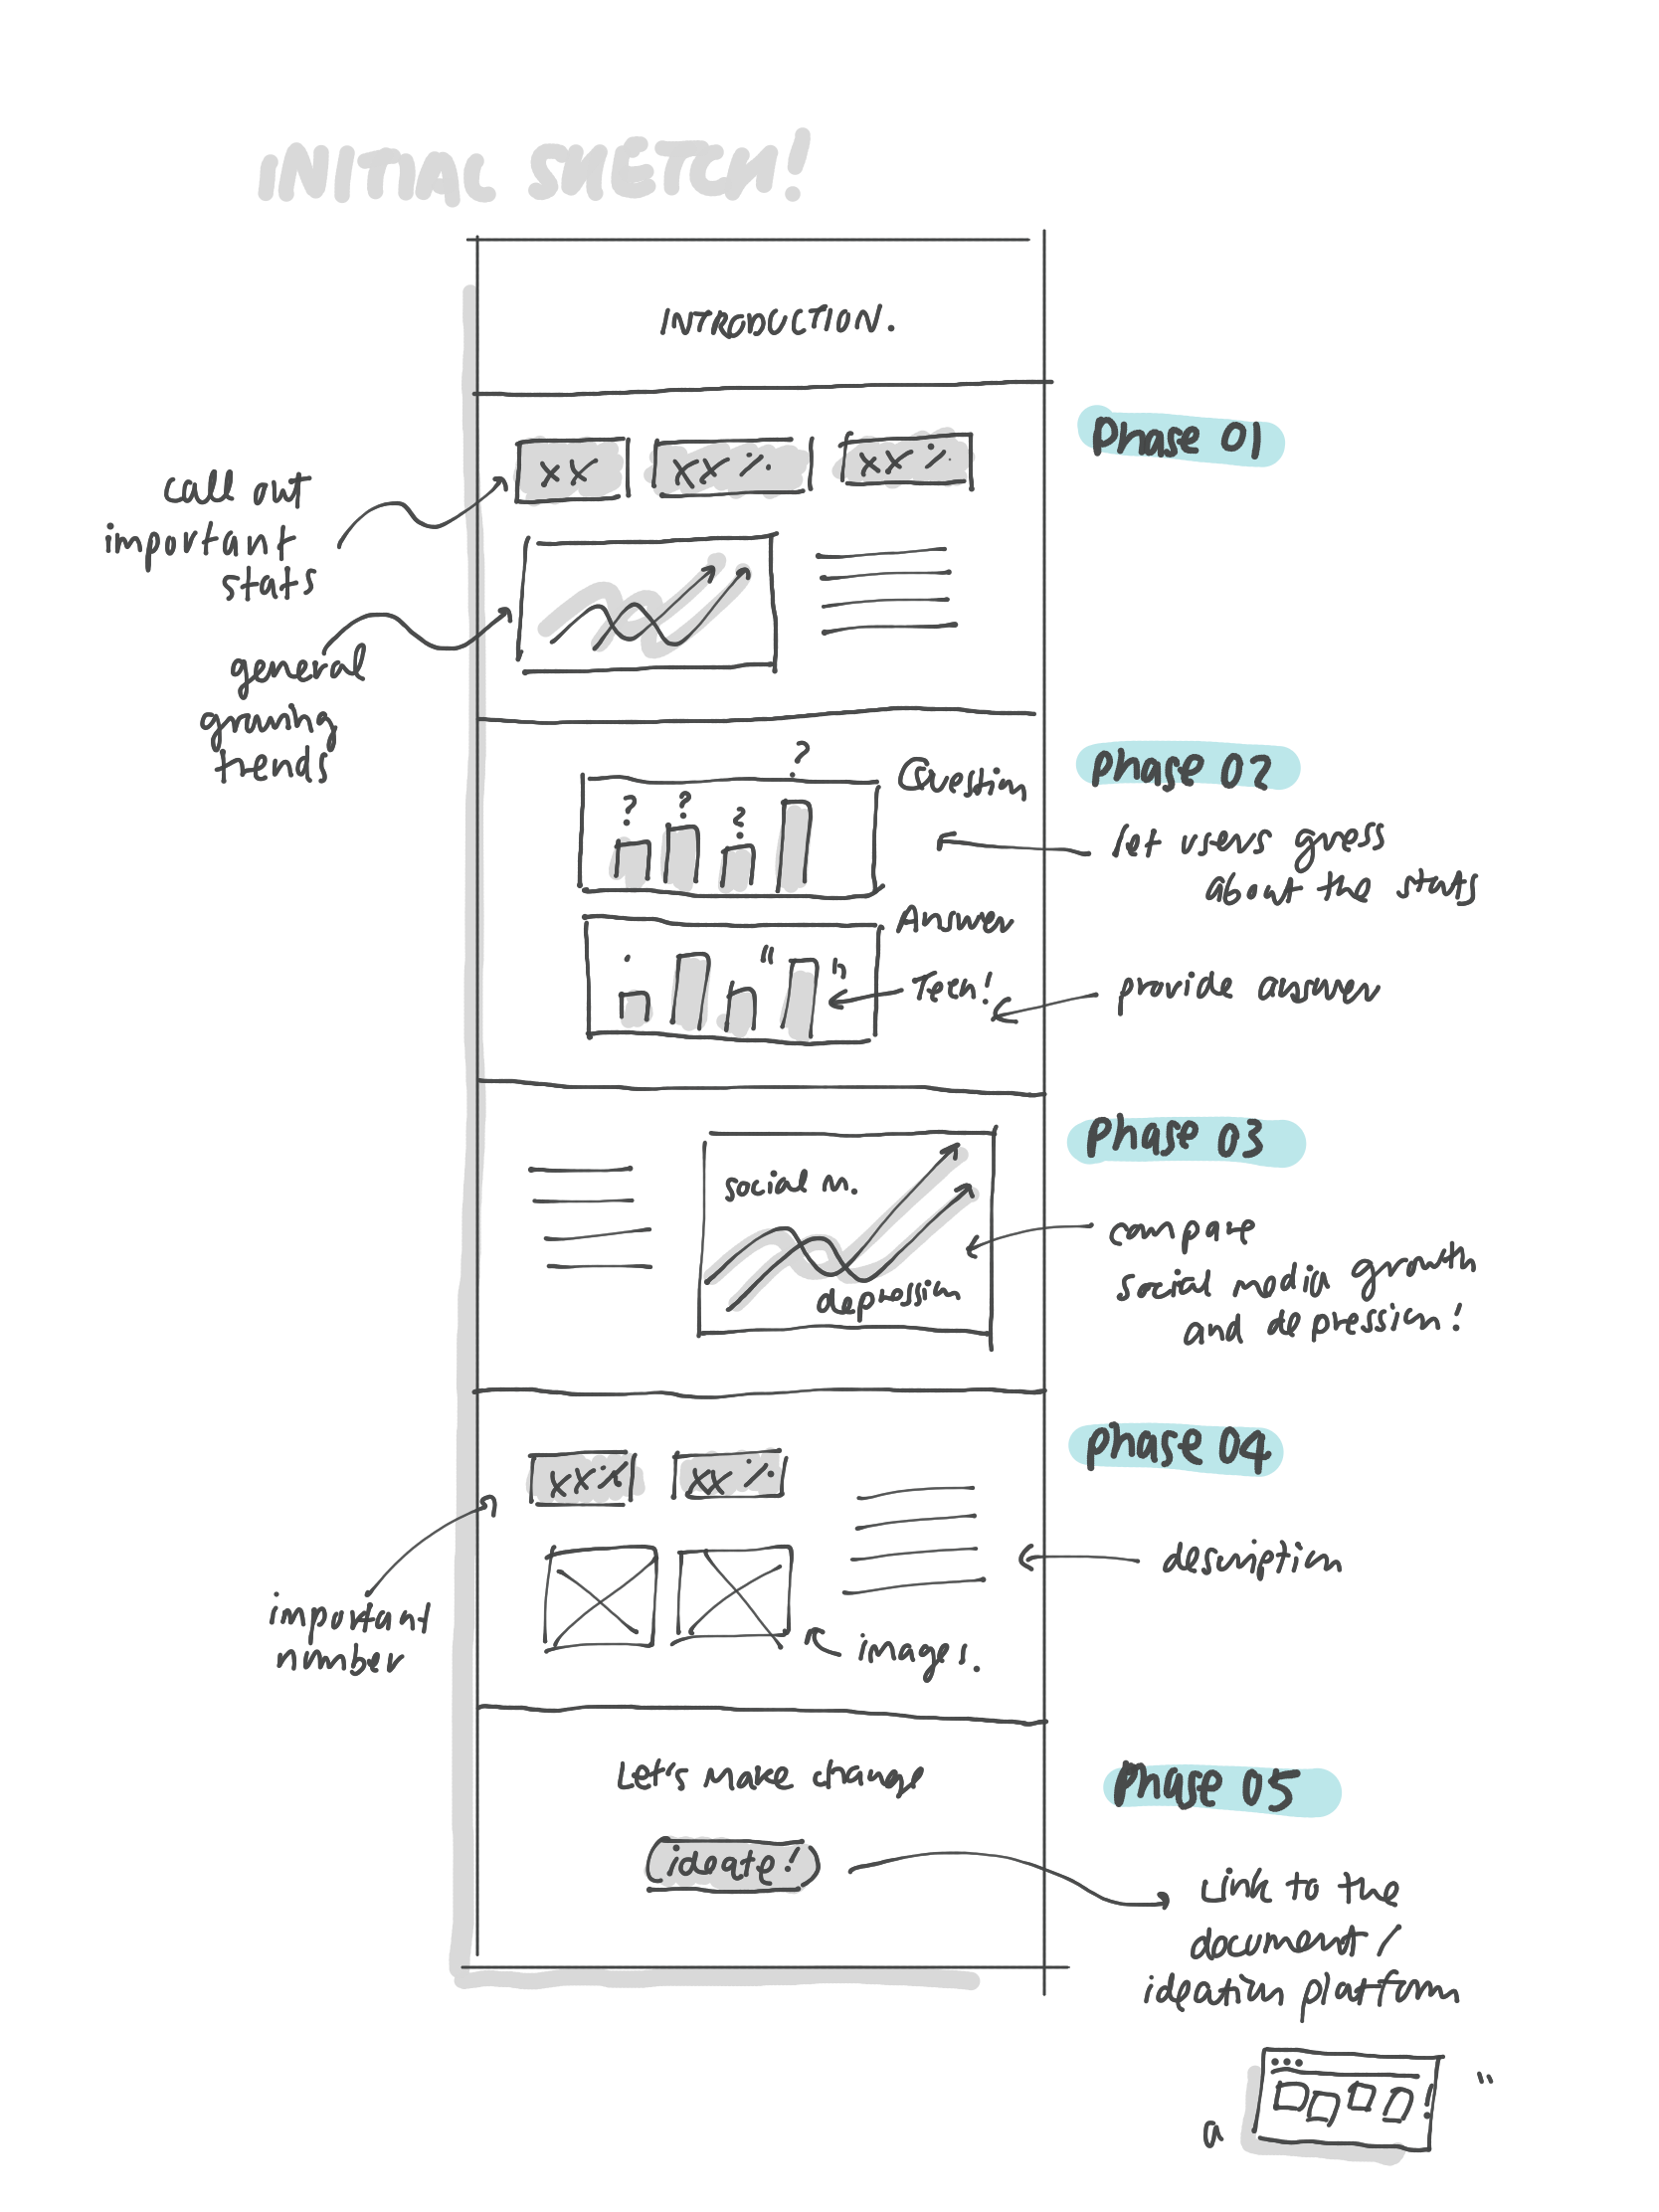 INITIAL SKETCH!
INTRODUCTION.
Phase 01
XX
XX %.
XX %.
call out
important
stats
general
growing
trends
Phase 02
?
?
?
?
Question
let users guess
about the stats
Answer
Teen!
provide answer
Phase 03
social m.
depression
compare
social media growth
and depression!
Phase 04
XX%
XX %.
description
important
number
images.
Let's make change
Phase 05
ideate!
Link to the
document /
ideation platform
a
!